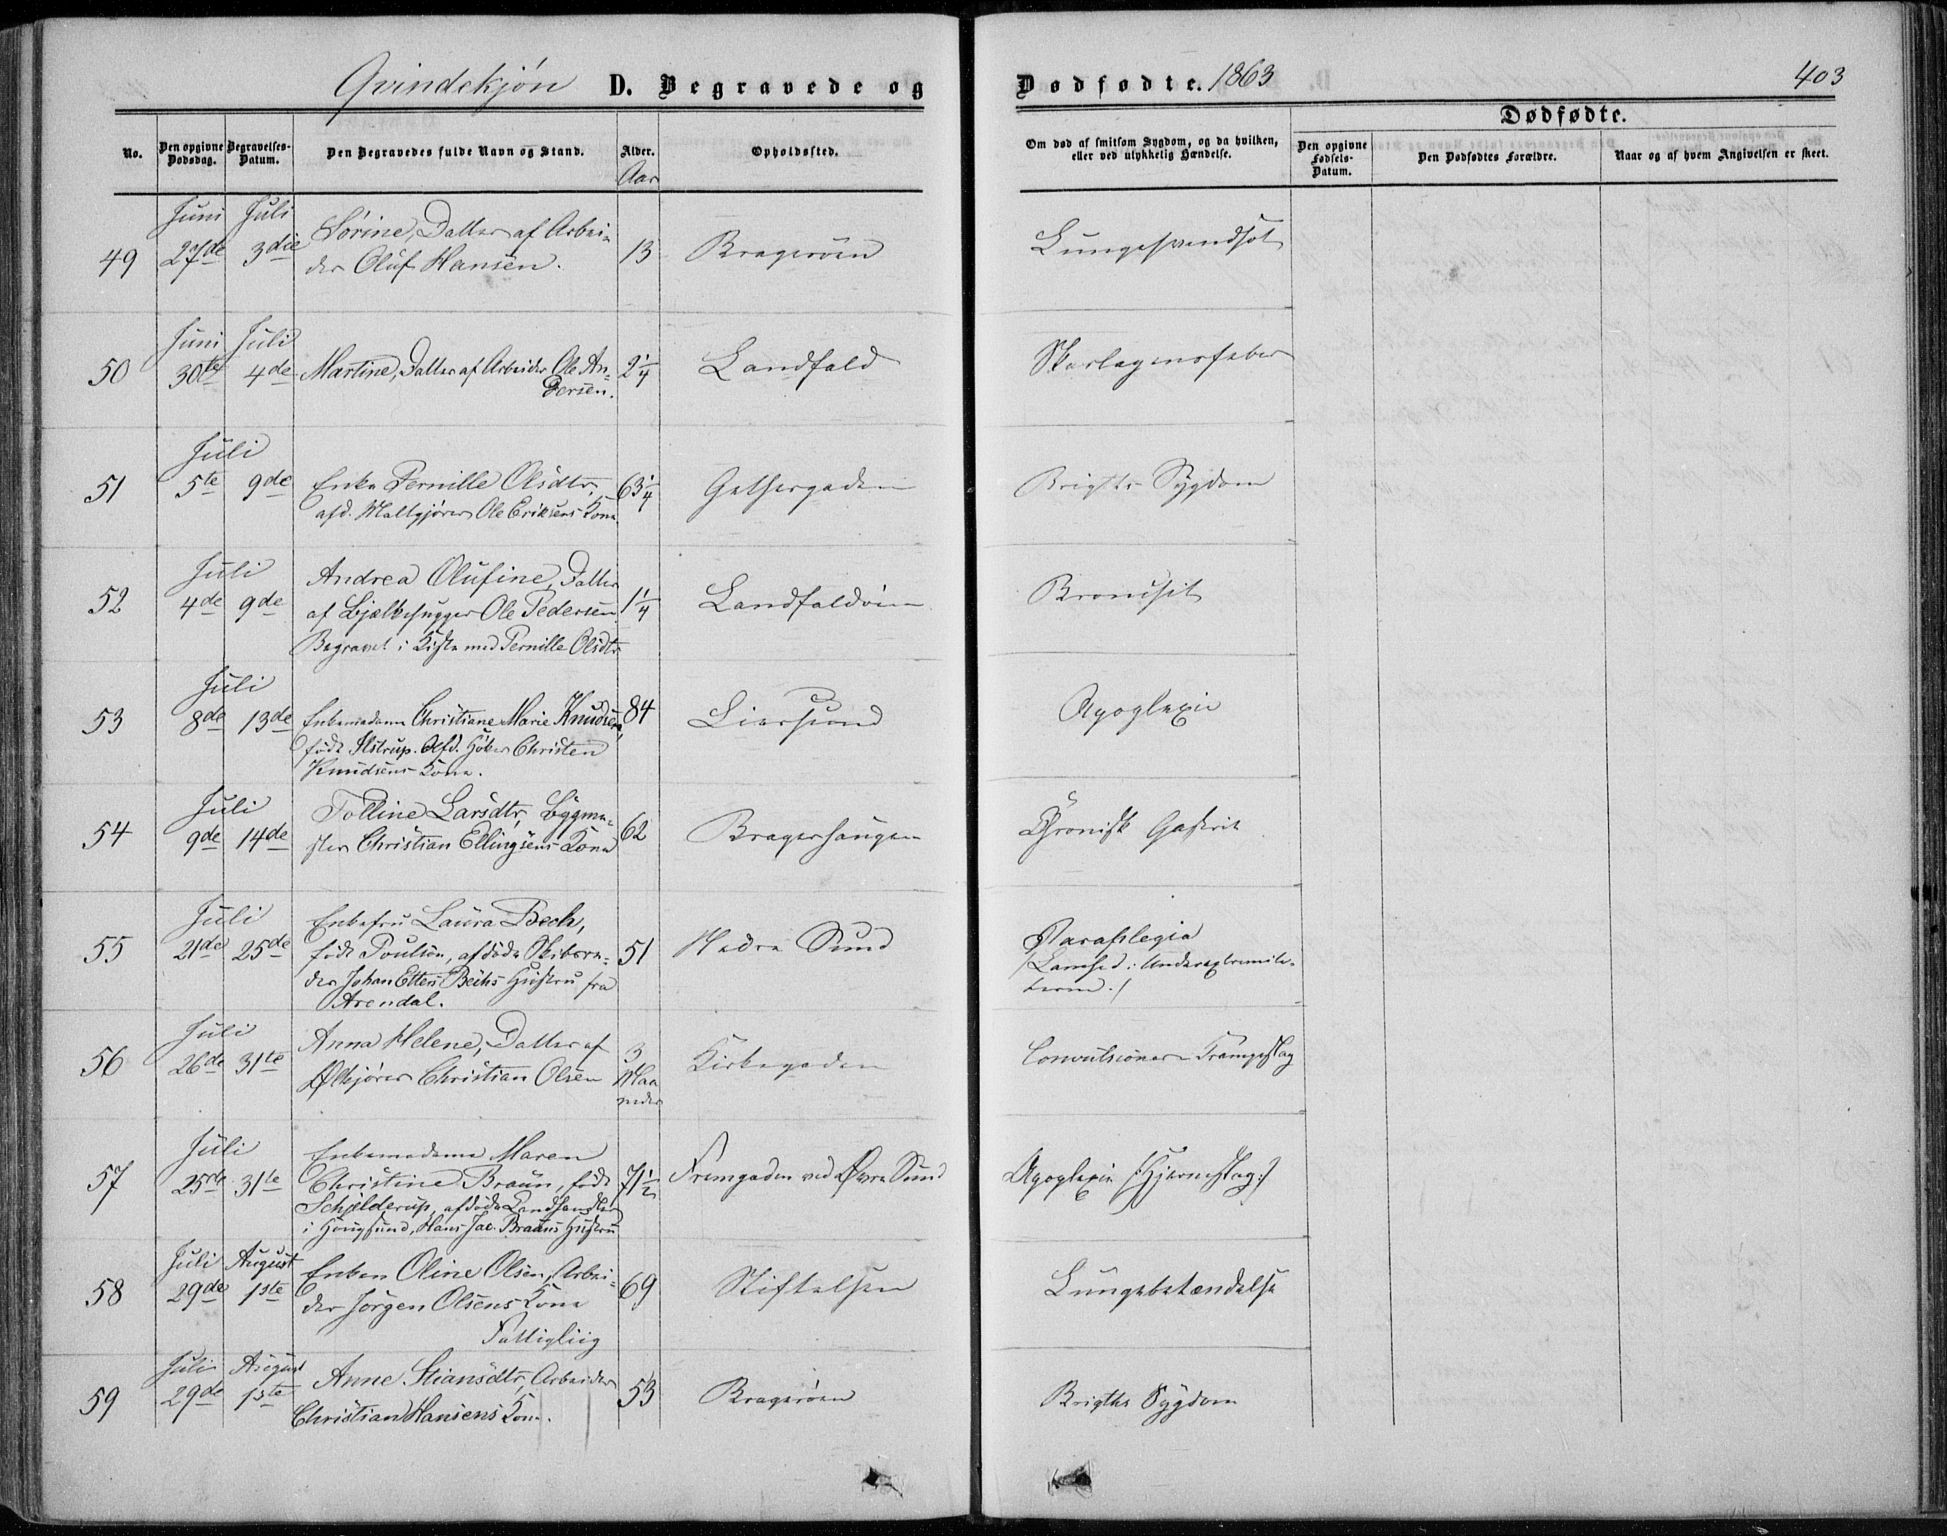 Qvindekjøn D. Begravede og Dødfødte. 1863 403
Dødfødte.
No. Den opgivne Dødsdag. Begravelses-Datum. Den Begravedes fulde Navn og Stand. Alder. Opholdssted. Om død af smitsom Sygdom, og da hvilken, eller ved ulykkelig Hændelse. Den opgivne Fødsels-Datum. Den Dødfødtes Forældre. Naar og af hvem Angivelsen er skeet.
Aar
Juni Juli
49 27de 3die Sørine, Datter af Arbei- 13 Bragerøen Lungesvindsot
der Oluf Hansen.
Juni Juli
50 30te 4de Martine, Datter af Arbeider Ole An- 2 1/4 Landfald Skarlagensfeber
dersen.
Juli
51 5te 9de Enke Pernille Olsdtr, 63 1/4 Gethergaden Brigths Sygdom
afd. Maltgjører Ole Eriksens Kone
Juli
Andrea Olufine, Datter
52 4de 9de af Bjælkehugger Ole Pedersen 1 1/4 Landfaldøen Bronchit
Begravet i Kiste med Pernille Olsdtr
Juli
53 8de 13de Enkemadame Christiane Marie Knudsen, 84 Liersund Apoplexie
født Ilstrup. Afd. Høker Christen
Knudsens Kone.
Juli
54 9de 14de Tolline Larsdtr, Bygme- 62 Bragerhaugen Chronisk Gastrit
ster Christian Ellingsens Kone
Juli
Enkefru Laura Bech,
55 21de 25de født Poulson, afdøde Skibsre- 51 Nedre Sund Paraplegia
der Johan Ettens Bechs Hustru fra (Lamhed i Underextremite-
Arendal. terne.)
Juli
56 26de 31te Anna Helene, Datter af 3 Maaneder Kirkegaden Convulsioner - Krampeslag
Ølkjører Christian Olsen
Juli
Enkemadame Maren
57 25de 31te Christine Braun, født 71 1/2 Fremgaden ved Øvre Sund Apoplexie (:Hjerneslag:)
Schjelderup, afdøde Landhandler
i Hougsund, Hans Jac. Brauns Hustru
Juli August
58 29de 1ste Enken Oline Olsen, Arbei- 69 Stiftelsen Lungebetændelse
der Jørgen Olsens Kone
Fattigliig
Juli August
59 29de 1ste Anne Stiansdtr, Arbeider 53 Bragerøen Brigths Sygdom
Christian Hansens Kone.